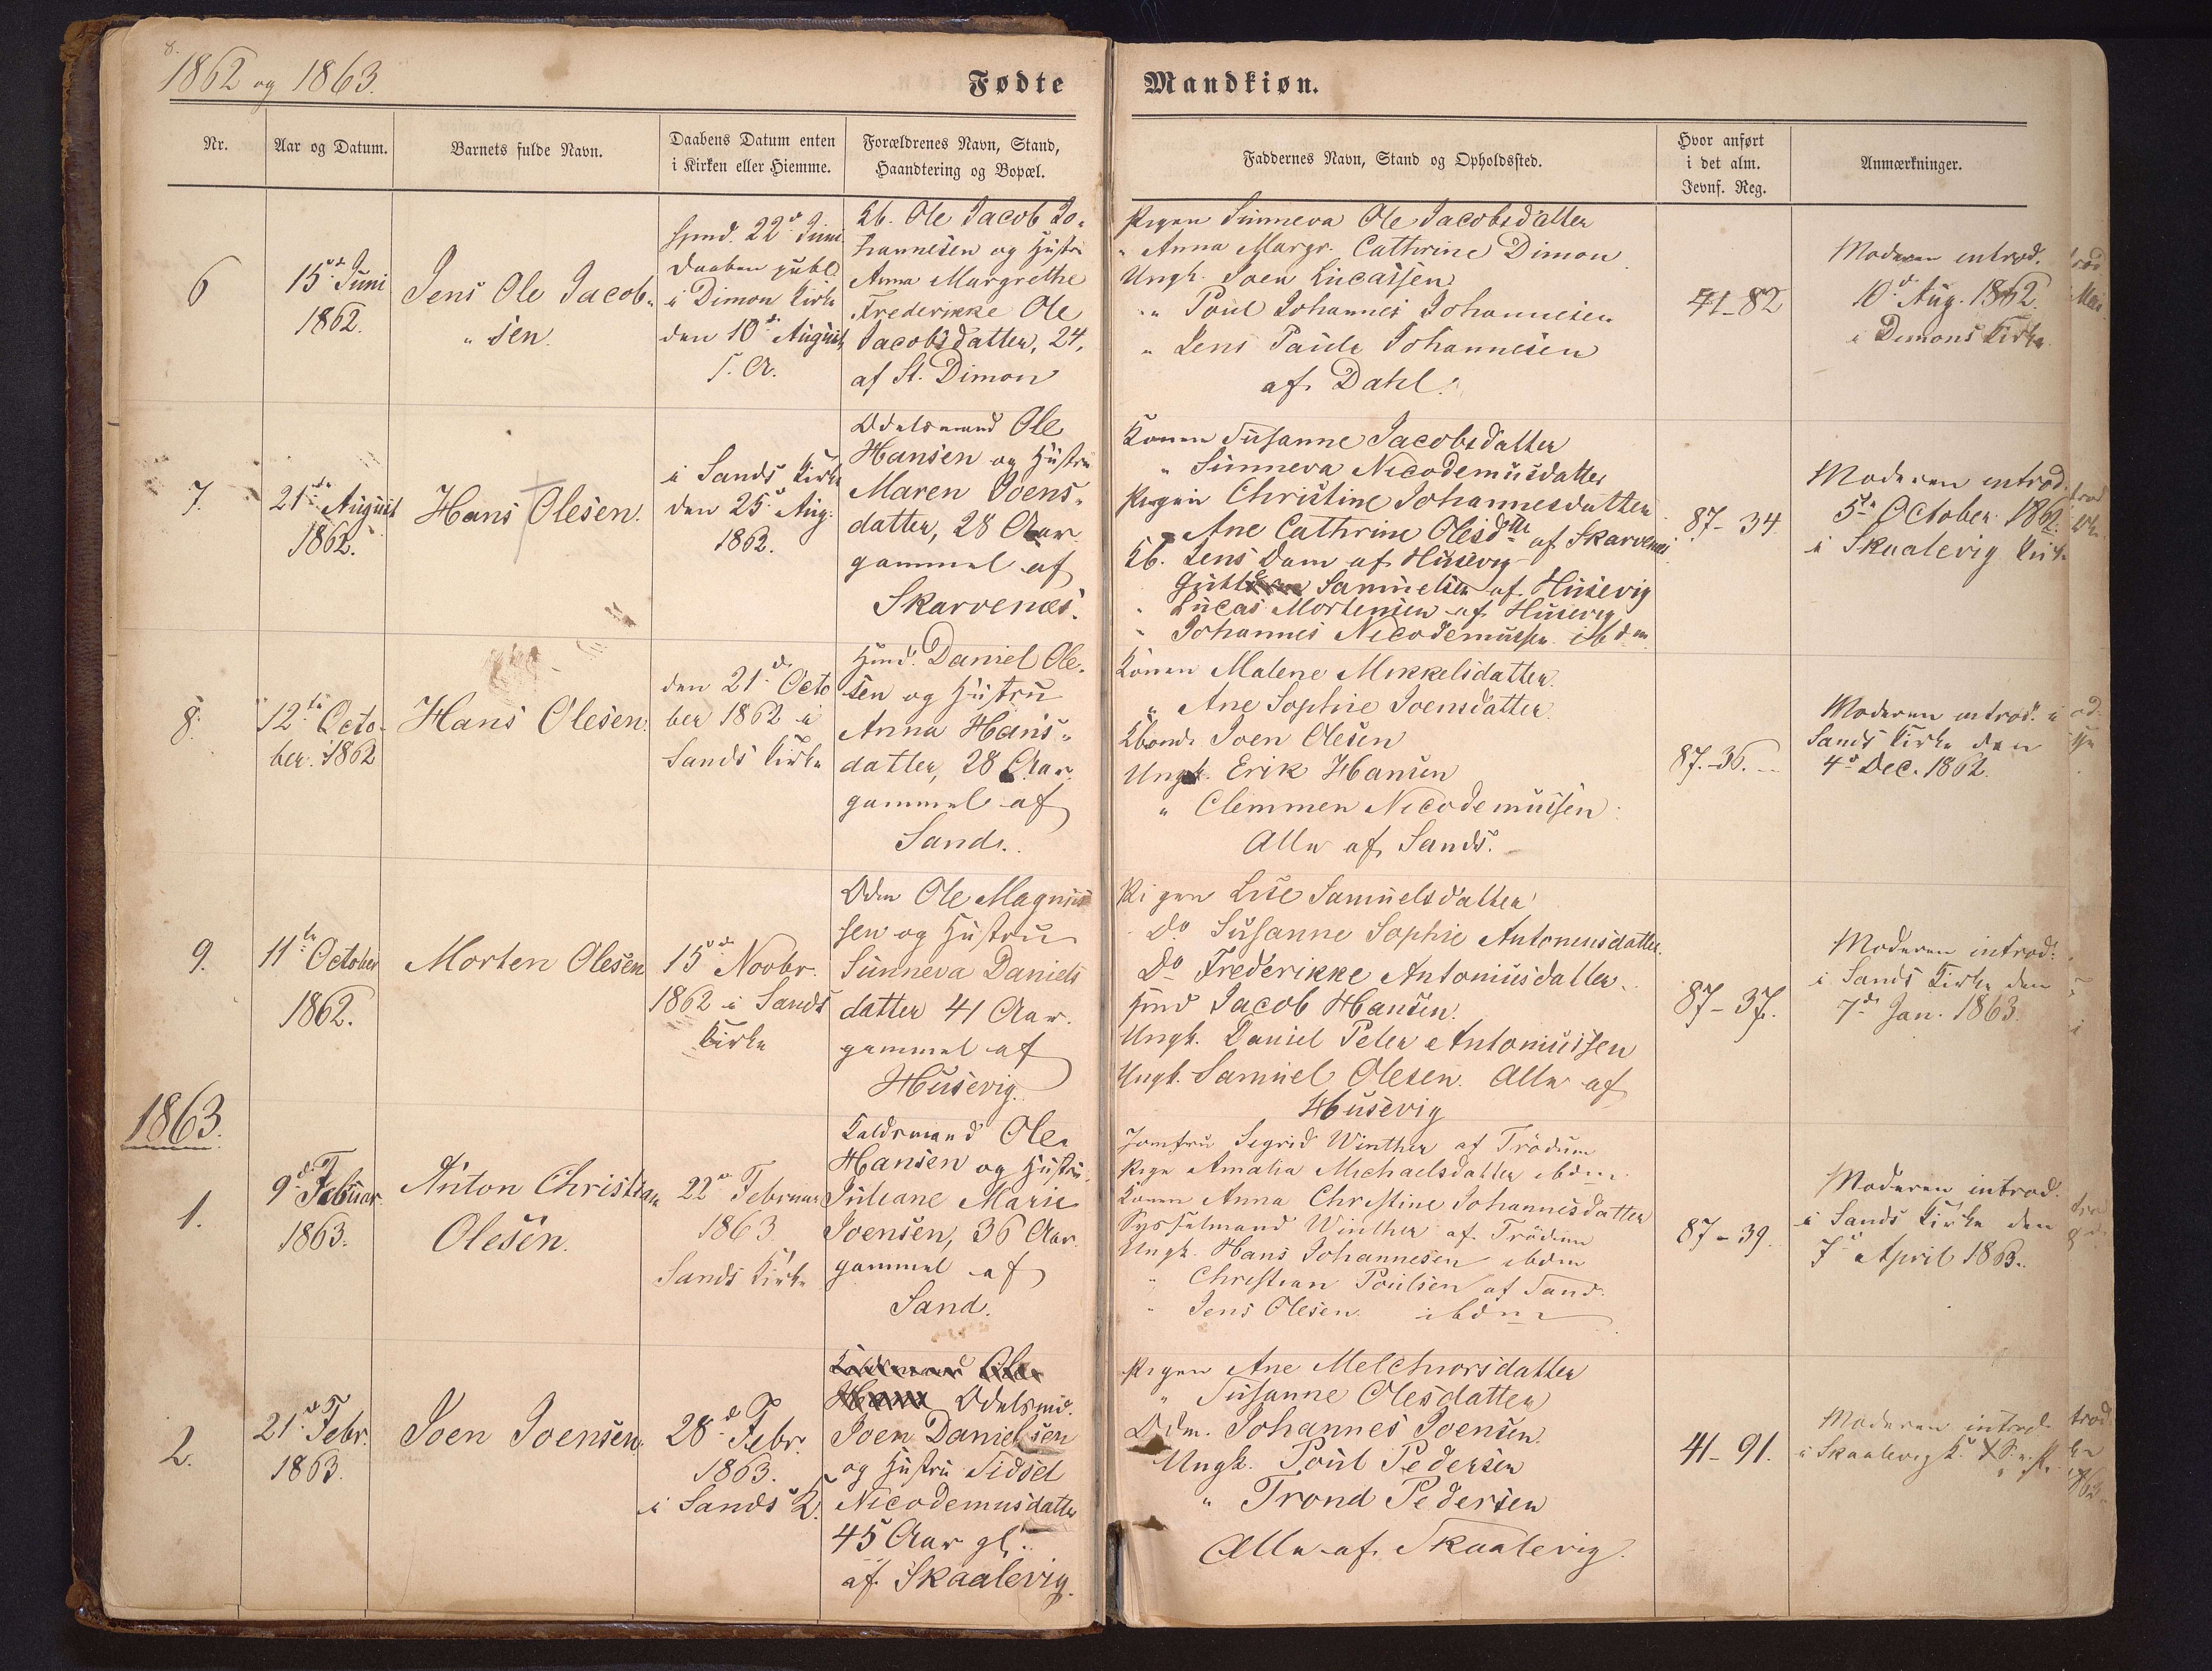 8.
1862 og 1863.
Fødte
Mandkiøn.
Nr.
Aar og Datum.
Barnets fulde Navn.
Daabens Datum enten
i Kirken eller Hiemme.
Forældrenes Navn, Stand,
Haandtering og Bopæl.
Faddernes Navn, Stand og Opholdssted.
Hvor anført
i det alm.
Jevnf. Reg.
Anmærkninger.
6
15de Juni
1862.
Jens Ole Jacob-
"sen.
hjmd. 22de Juni
Daaben publ.
i Dimon Kirke
den 10de August
s. A.
Kb. Ole Jacob Jo-
hannesen og Hustru
Anna Margrethe
Frederikke Ole
Jacobsdatter, 24,
af St. Dimon
Pigen Sunneva Ole Jacobsdatter
" Anna Margr. Cathrine Dimon
Ungk. Joen Lucassen
" Poul Johannes Johannesen
" Jens Pauli Johannesen
af Dahl.
41-82
Moderen introd.
10de Aug. 1862
i Dimons Kirke
7.
21de August
1862.
Hans Olesen.
i Sands Kirke
den 25de Aug.
1862.
Odelsmand Ole
Hansen og Hustru
Maren Joens-
datter, 28 Aar
gammel af
Skarvenæs.
Konen Susanne Jacobsdatter
" Sunneva Nicodemusdatter
Pigen Christine Johannesdatter
" Ane Cathrine Olesdtr af Skarvenæs
Kb. Jens Dam af Husevig
Samuelsen af Husevig
" Lucas Mortensen af Husevig
" Johannes Nicodemussen ibdm
87-34
Moderen introd.
5te October 1862.
i Skaalevig Kirke
8.
12te Octo-
ber 1862
Hans Olesen.
den 21de Octo
ber 1862 i
Sands Kirke
Hmd. Daniel Ole-
sen og Hustru
Anna Hans-
datter, 28 Aar
gammel af
Sands.
Konen Malene Mikkelsdatter.
" Ane Sophie Joensdatter.
Kbond. Joen Olesen
Ungk. Erik Hansen
" Clemmen Nicodemussen
Alle af Sands.
87-36.
Moderen introd. i
Sands Kirke den
4de Dec. 1862.
9.
11te October
1862.
Morten Olesen
15de Novbr.
1862 i Sands
Kirke
Odm Ole Magnus
sen og Hustru
Sunneva Daniels
datter 41 Aar
gammel af
Husevig.
Pigen Lise Samuelsdatter
Do Susanne Sophie Antoniusdatter.
Do Frederikke Antoniusdatter.
Hmd Jacob Hansen.
Ungk. Daniel Peter Antoniussen
Ungk. Samuel Olesen. Alle af
Husevig
87-37.
Moderen introd:
i Sands Kirke den
7de Jan. 1863.
1863.
1.
9de Februar
1863.
Anton Christian
Olesen.
22de Februar
1863
Sands Kirke
Kaldsmand Ole
Hansen og Hustru
Juliane Marie
Joensen, 36 Aar
gammel af
Sand.
Jomfru Sigrid Winther af Trödum
Pige Amalia Michaelsdatter ibdm
Konen Anna Christine Johannesdatter
Sysselmand Winther af Trödum
Ungk. Hans Johannesen ibdm
" Christian Poulsen af Sand.
" Jens Olesen ibdm
87-39.
Moderen introd.
i Sands Kirke den
7de April 1863.
2.
21de Febr.
1863.
Joen Joensen.
28de Febr.
1863.
i Sands K.
Kaldsmand Ole
Hans Odelsmd.
Joen Danielsen
og Hustru Sidsel
Nicodemusdatter
45 Aar gl.
af Skaalevig.
Pigen Ane Melchiorsdatter
" Susanne Olesdatter
Odm. Johannes Joensen.
Ungk. Poul Pedersen
" Trond Pedersen
Alle af Skaalevig.
41-91.
Moderen introd.
i Skaalevig K.